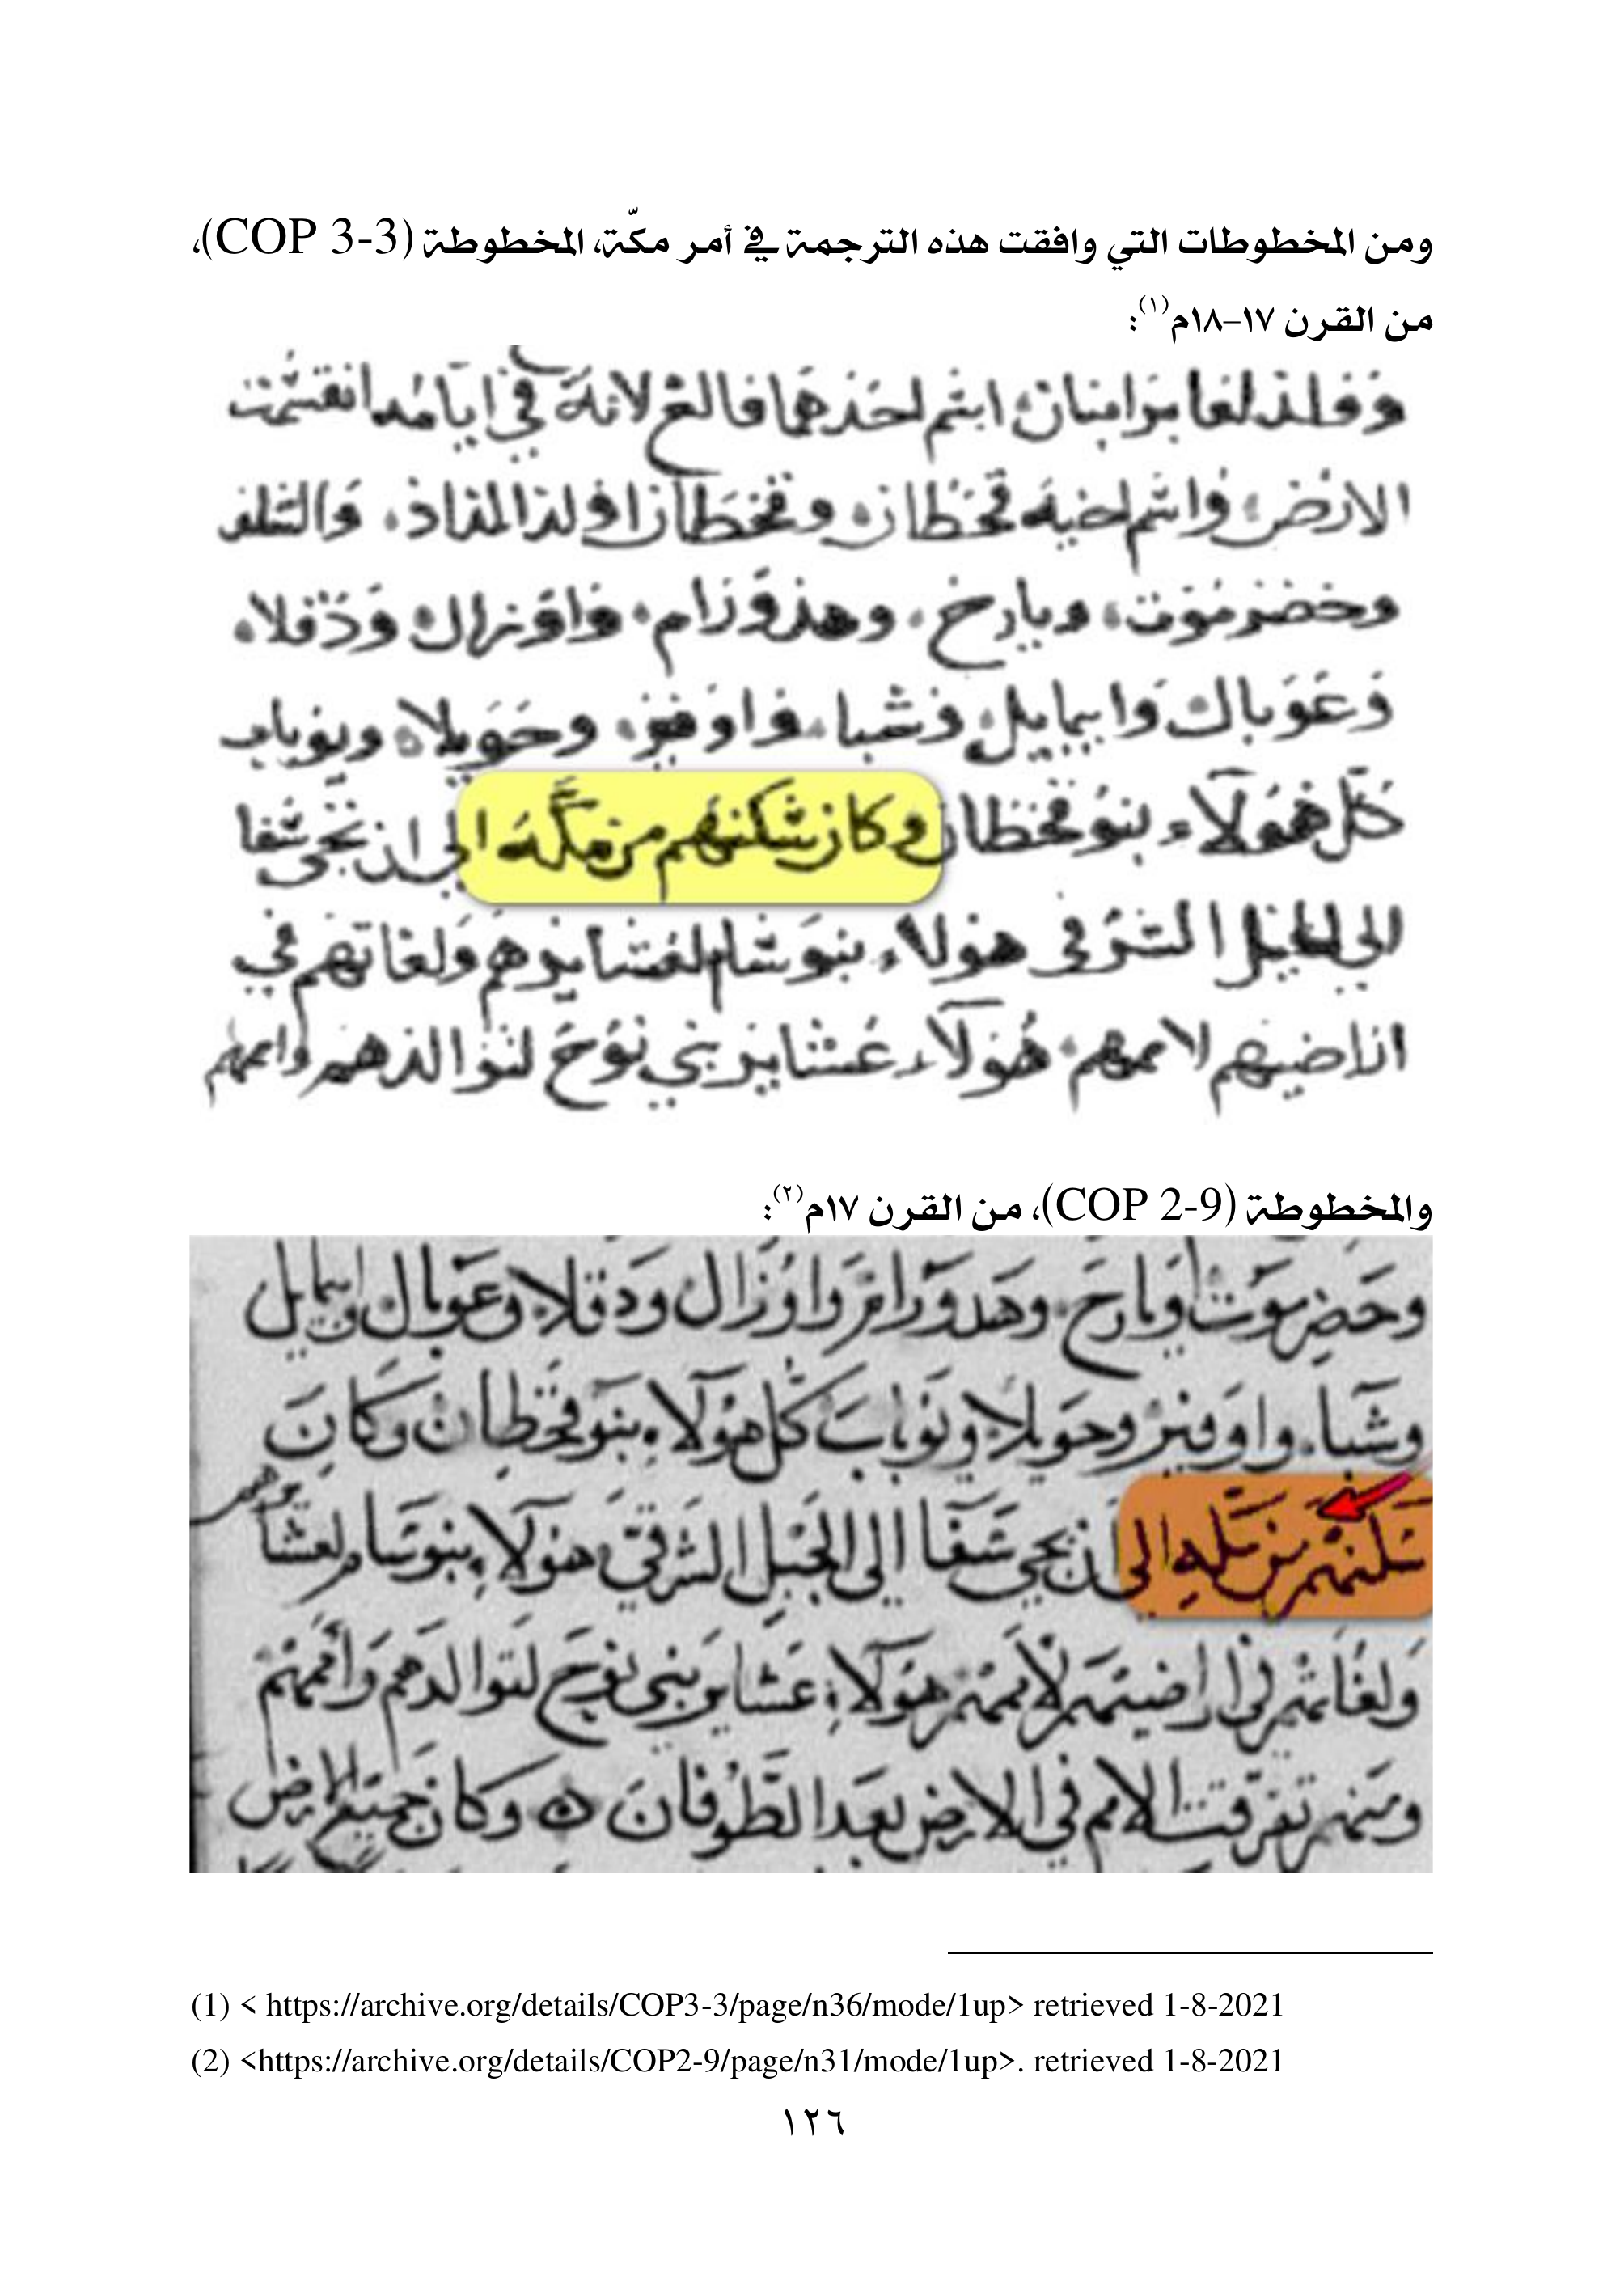 ومن المخطوطات التي وافقت هذه الترجمة في أمر مكّة، المخطوطة (COP 3-3)،
من القرن ١٧–١٨م(١):
وولد لعابر ابنان اسم احدهما فالغ لانه في ايامه انقسمت
الارض واسم اخيه قحطان وقحطان اولد المذاذ والسلف
وحضرموت ويارخ وهذورام واوزال ودقلا
وعوبال وابيمايل وشبا واوفير وحويلا ويوباب
كل هولاء بنو قحطان وكان سكنهم من مكه الى ان تجى سفا
الى الجبل الشرقى هولاء بنو سام لعشايرهم ولغاتهم في
اراضيهم لاممهم هولاء عشاير بني نوح لتوالدهم واممهم
والمخطوطة (COP 2-9)، من القرن ١٧م(٢):
وحضرموت ويارح وهدورام واوزال ودقلا وعوبال وابيمايل
وشبا واوفير وحويلا ويوباب كل هولاء بنو قحطان وكان
سكنهم من مكه الى ان تجي سفا الى الجبل الشرقي هولاء بنو سام لعشايرهم
ولغاتهم في اراضيهم لاممهم هولاء عشاير بني نوح لتوالدهم واممهم
ومنهم تفرقت الامم في الارض بعد الطوفان ه وكان جميع الارض
(1) < https://archive.org/details/COP3-3/page/n36/mode/1up> retrieved 1-8-2021
(2) <https://archive.org/details/COP2-9/page/n31/mode/1up>. retrieved 1-8-2021
١٢٦